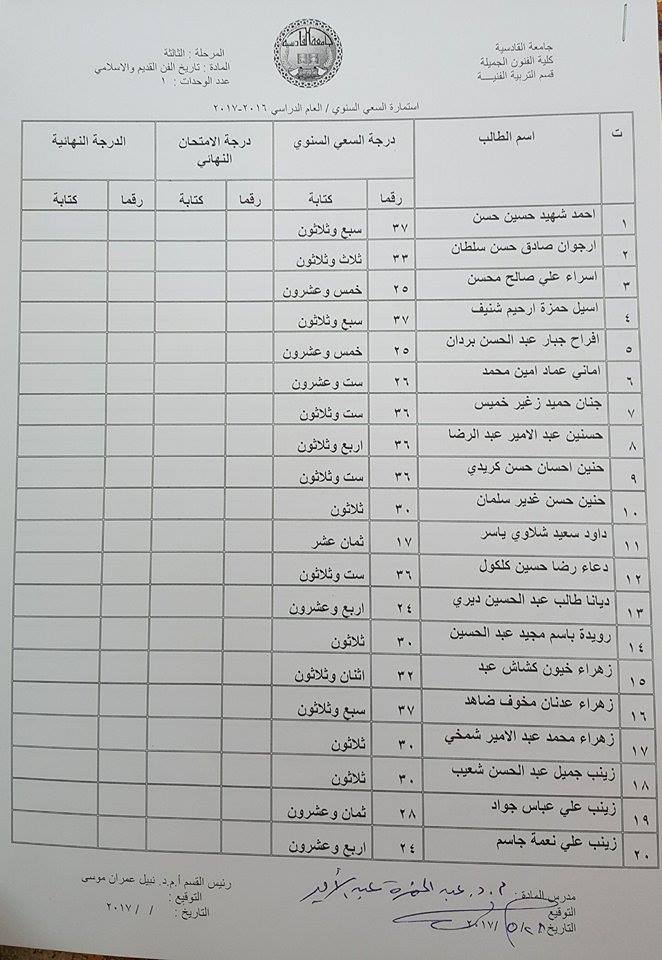 جامعة القادسية
كلية الفنون الجميلة
قسم التربية الفنيـــة
جامعة القادسية
المرحلة : الثالثة
المادة : تاريخ الفن القديم والاسلامي
عدد الوحدات : ١
استمارة السعي السنوي / العام الدراسي ٢٠١٦-٢٠١٧
ت اسم الطالب درجة السعي السنوي درجة الامتحان النهائي الدرجة النهائية
رقما كتابة رقما كتابة رقما كتابة
١ احمد شهيد حسين حسن ٣٧ سبع وثلاثون
٢ ارجوان صادق حسن سلطان ٣٣ ثلاث وثلاثون
٣ اسراء علي صالح محسن ٢٥ خمس وعشرون
٤ اسيل حمزة ارحيم شنيف ٣٧ سبع وثلاثون
٥ افراح جبار عبد الحسن بردان ٢٥ خمس وعشرون
٦ اماني عماد امين محمد ٢٦ ست وعشرون
٧ جنان حميد زغير خميس ٣٦ ست وثلاثون
٨ حسنين عبد الامير عبد الرضا ٣٦ اربع وثلاثون
٩ حنين احسان حسن كريدي ٣٦ ست وثلاثون
١٠ حنين حسن غدير سلمان ٣٠ ثلاثون
١١ داود سعيد شلاوي ياسر ١٧ ثمان عشر
١٢ دعاء رضا حسين كلكول ٣٦ ست وثلاثون
١٣ ديانا طالب عبد الحسين ديري ٢٤ اربع وعشرون
١٤ رويدة باسم مجيد عبد الحسين ٣٠ ثلاثون
١٥ زهراء خيون كشاش عبد ٣٢ اثنان وثلاثون
١٦ زهراء عدنان مخوف ضاهد ٣٧ سبع وثلاثون
١٧ زهراء محمد عبد الامير شمخي ٣٠ ثلاثون
١٨ زينب جميل عبد الحسن شعيب ٣٠ ثلاثون
١٩ زينب علي عباس جواد ٢٨ ثمان وعشرون
٢٠ زينب علي نعمة جاسم ٢٤ اربع وعشرون
مدرس المادة : م.د. عبد الحمزة عبد الأمير
التوقيع
التاريخ ٢٠١٧/٥/٢٨
رئيس القسم أ.م.د. نبيل عمران موسى
التوقيع :
التاريخ : / / ٢٠١٧